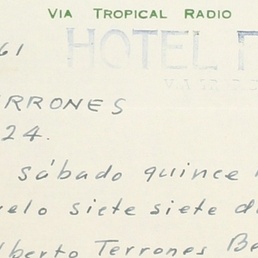 VIA TROPICAL RADIO
HOTEL
61
RRONES
24.
sábado quince
elo siete siete
lberto Terrones Be